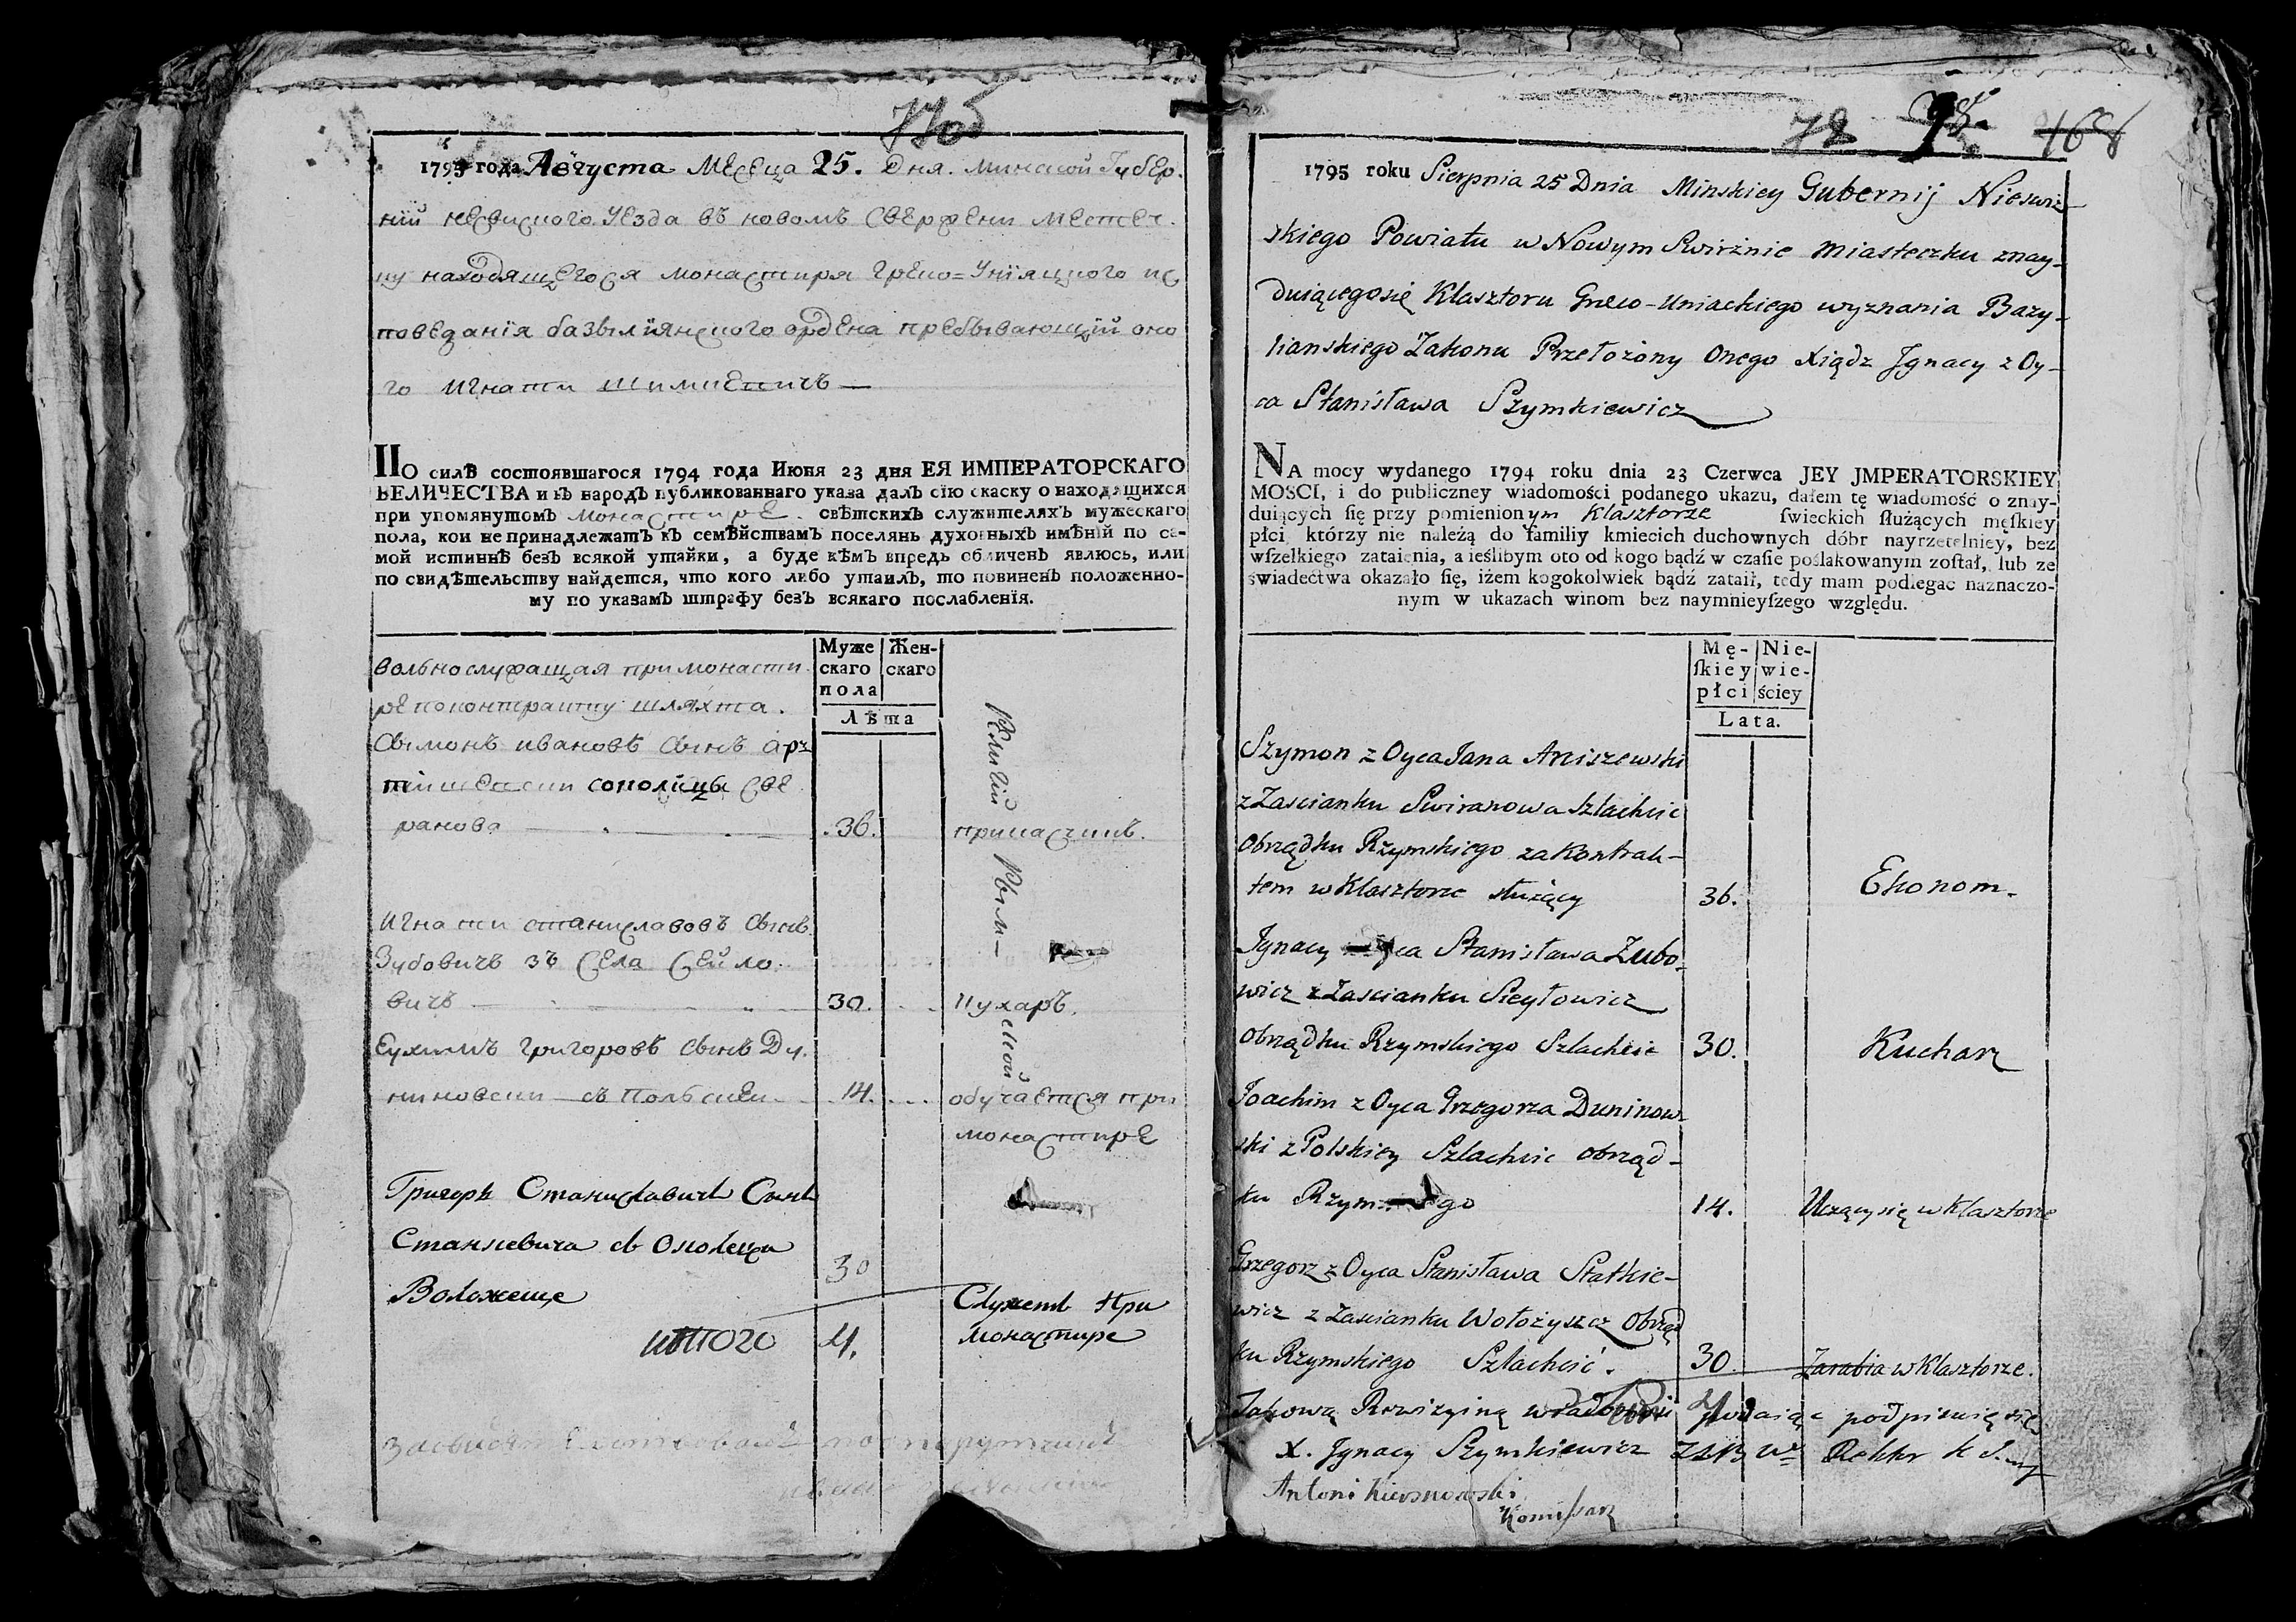 71об
1795 года Августа Месеца 25. Дня. Минской Губер.
нїй несвисного Уезда въ новомъ Свержени местеч.
ку находящегося монастиря греко=Унїяцкого ис
поведанїя базвилїянского ордена пребывающїй оно
го Игнати шимкевичъ —
ПО силѣ состоявшагося 1794 года Июня 23 дня ЕЯ ИМПЕРАТОРСКАГО
ВЕЛИЧЕСТВА и въ народъ публикованнаго указа далъ сїю скаску о находящихся
при упомянутомъ монастире. свѣтскихъ служителяхъ мужескаго
пола, кои не принадлежатъ къ семѣйствамъ поселянъ духовныхъ имѣнїй по са-
мой истиннѣ безъ всякой утайки, а буде кѣмъ впредь обличенъ явлюсь, или
по свидѣтельству найдется, что кого либо утаилъ, то повиненъ положенно-
му по указамъ штрафу безъ всякаго послабленїя.
Муже
скаго
пола
Жен-
скаго
Лѣта
вольнослужащая при монасти.
ре по контракту шляхта.
Сымонъ ивановъ сынъ арц
пїшевски соколицы Све
ранова — . 36. прикасчикъ.
Религїй Рым— ской
Игнати станиславовъ сынъ.
Зубовичъ зъ Села Сейло.
вичъ — 30. Кухаръ.
Еухимъ григоровъ сынъ Ду.
ниновски — съ Польскей 14. обучается при
монастире
Григоръ Станиславичъ Сынъ
Станкевича съ Околецы
Воложеще 30 Служетъ при
монастире
итого 4.
1795 roku Sierpnia 25 Dnia Minskiey Gubernij Nieswiz
skiego Powiatu w Nowym Swirznie Miasteczku znay-
duiącegosię Klasztoru Greco-Uniackiego wyznania Bazy-
lianskiego Zakonu Przełożony Onego Xiądz Jgnacy z Oy-
ca Stanisława Szymkiewicz
72 168
NA mocy wydanego 1794 roku dnia 23 Czerwca JEY JMPERATORSKIEY
MOSCI, i do publiczney wiadomości podanego ukazu, dałem tę wiadomość o znay-
duiących się przy pomienionym Klasztorze świeckich służących męſkiey
płci, którzy nie należą do familiy kmiecich duchownych dóbr nayrzetelniey, bez
wſzelkiego zataienia, a ieślibym oto od kogo bądź w czaſie poślakowanym zoſtał, lub ze
świadectwa okazało ſię, iżem kogokolwiek bądź zataił, tedy mam podlegac naznaczo-
nym w ukazach winom bez naymnieyſzego względu.
Mę-
ſkiey
płci
Nie-
wie-
ściey
Lata.
Szymon z Oyca Jana Arciszewski
z Zascianku Swiranowa Szlachcic
Obrządku Rzymskiego za Kontrak-
tem w Klasztorze służący 36. Ekonom.
Jgnacy Oyca Stanisława Zubo-
wicz z Zascianku Sieyłowicz
Obrządku Rzymskiego Szlachcic 30. Kucharz
Joachim z Oyca Grzegorza Duninow-
ski z Polskiey Szlachcic obrząd-
ku Rzymskiego 14. Uczący się w Klasztorze
Grzegorz z Oyca Stanisława Statkie-
wicz z Zascianku Wołożyszcz Obrząd
ku Rzymskiego Szlachcić. 30. Zarabia w Klasztorze.
4
Takową Rewizyiną podaiąc podpisuię się
X. Jgnacy Szymkiewicz ZSBW Rektor K S. mp
Antoni Kiersnowski
Komissarz